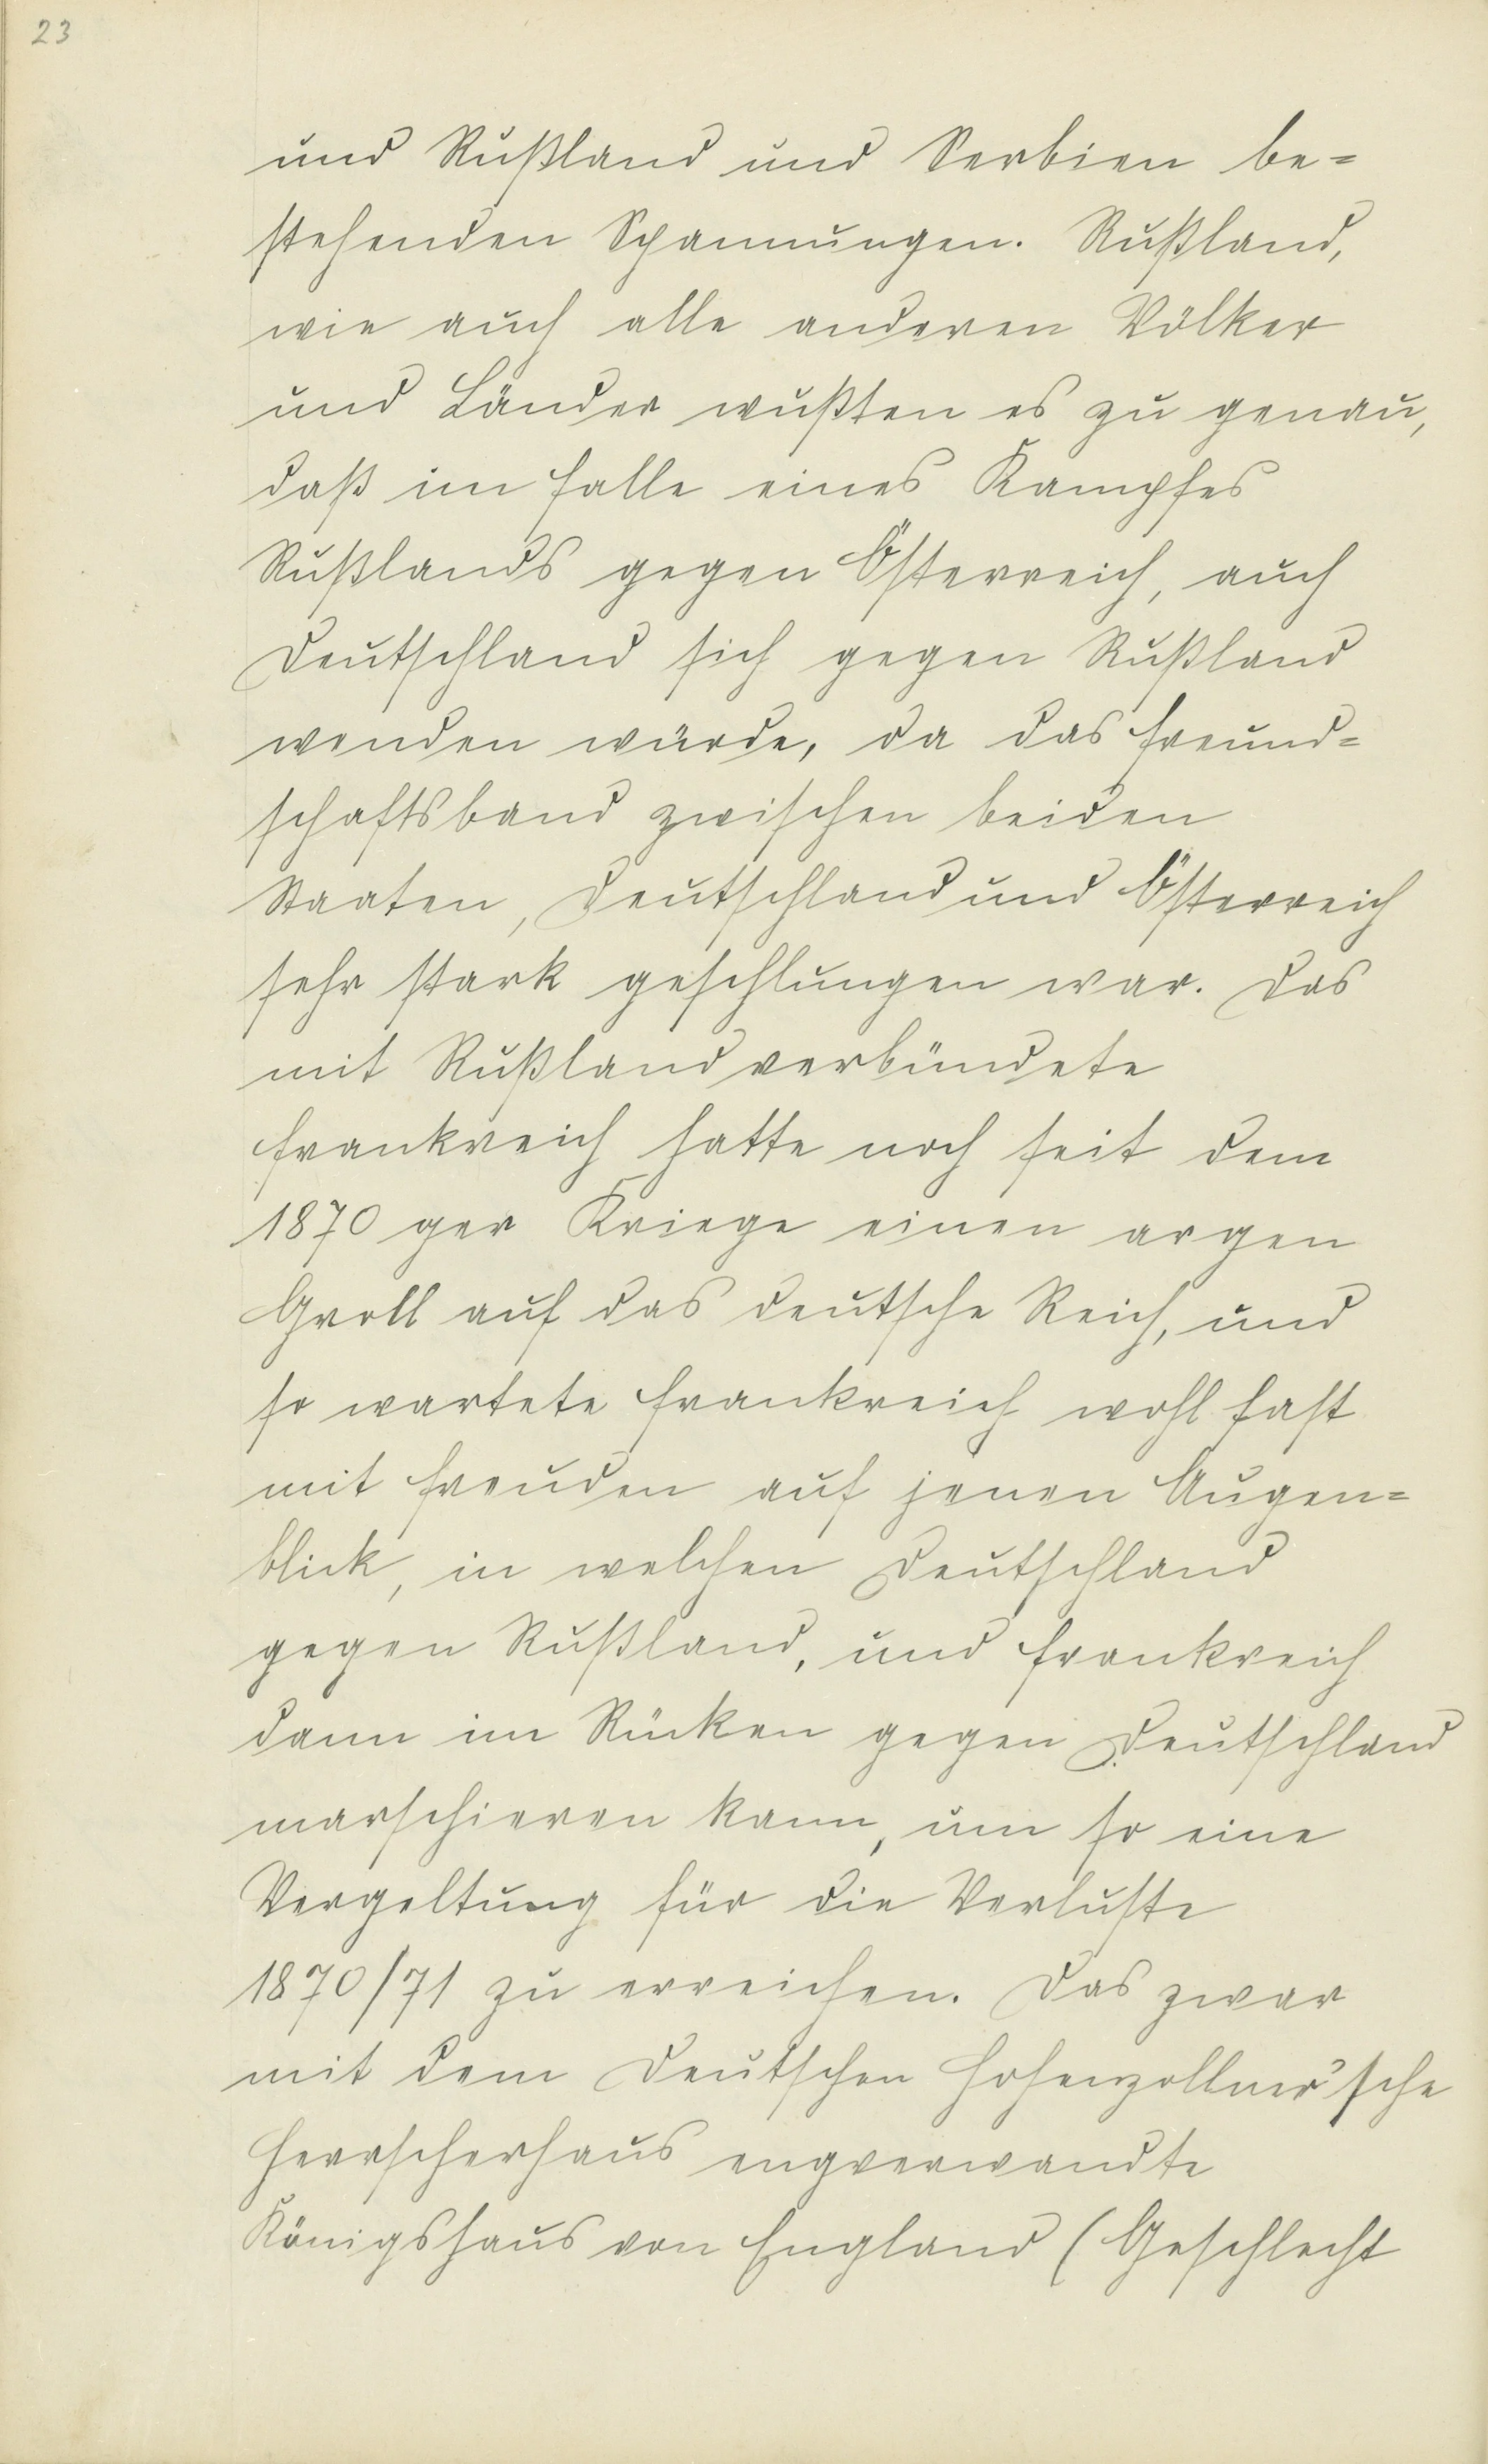 23
und Rußland und Serbien be=
stehenden Spannungen. Rußland,
wie auch alle anderen Völker
und Länder wußten es zu genau,
daß im Falle eines Kampfes
Rußlands gegen Österreich, auch
Deutschland sich gegen Rußland
wenden würde, da das Freund=
schaftsband zwischen beiden
Staaten, Deutschland und Österreich
sehr stark geschlungen war. Das
mit Rußland verbündete
Frankreich hatte noch seit dem
1870 ger Kriege einen argen
Groll auf das deutsche Reich, und
so wartete Frankreich wohl fast
mit Freuden auf jenen Augen=
blick, in welchen Deutschland
gegen Rußland, und Frankreich
dann im Rücken gegen Deutschland
marschieren kann, um so eine
Vergeltung für die Verluste
1870/71 zu erreichen. Das zwar
mit dem Deutschen Hohenzollner'sche
Herrscherhaus engverwandte
Königshaus von England (Geschlecht